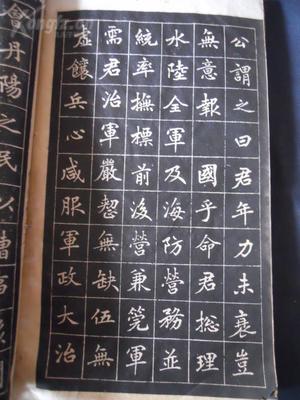 公謂之曰君年力未衰豈
無意報 國乎命君總理
水陸全軍及海防營務並
統率撫標前後營兼筦軍
需君治軍嚴整無缺伍無
虛饟兵心咸服軍政大治
會丹陽之民以漕